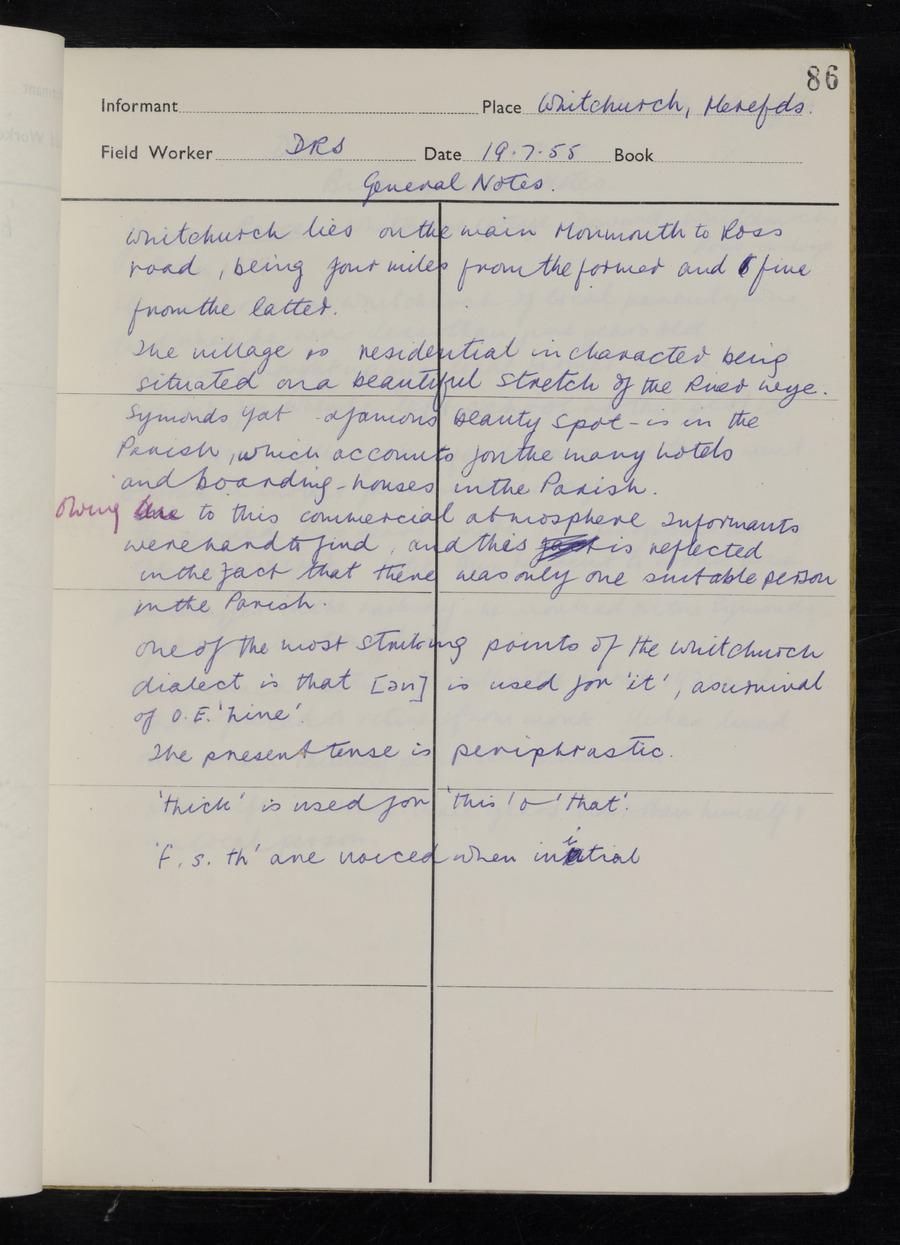 86
Informant Place Whitchurch, Herefds.
Field Worker DRS Date 19.7.55 Book
General Notes.
Whitchurch lies on the main Monmouth to Ross
road, being four miles from the former and five
from the latter.
The village is residential in character being
situated on a beautiful stretch of the River Wye.
Symonds Yat - a famous beauty spot - is in the
Parish, which accounts for the many hotels
and boarding-houses in the Parish.
Owing Due to this commercial atmosphere Informants
were hard to find, and this fact is reflected
in the fact that there was only one suitable person
in the Parish.
One of the most striking points of the Whitchurch
dialect is that [ən] is used for 'it', a survival
of O.E. 'hine'.
The present tense is periphrastic.
'thick' is used for 'this' o 'that'.
'f, s, th' are voiced when initial